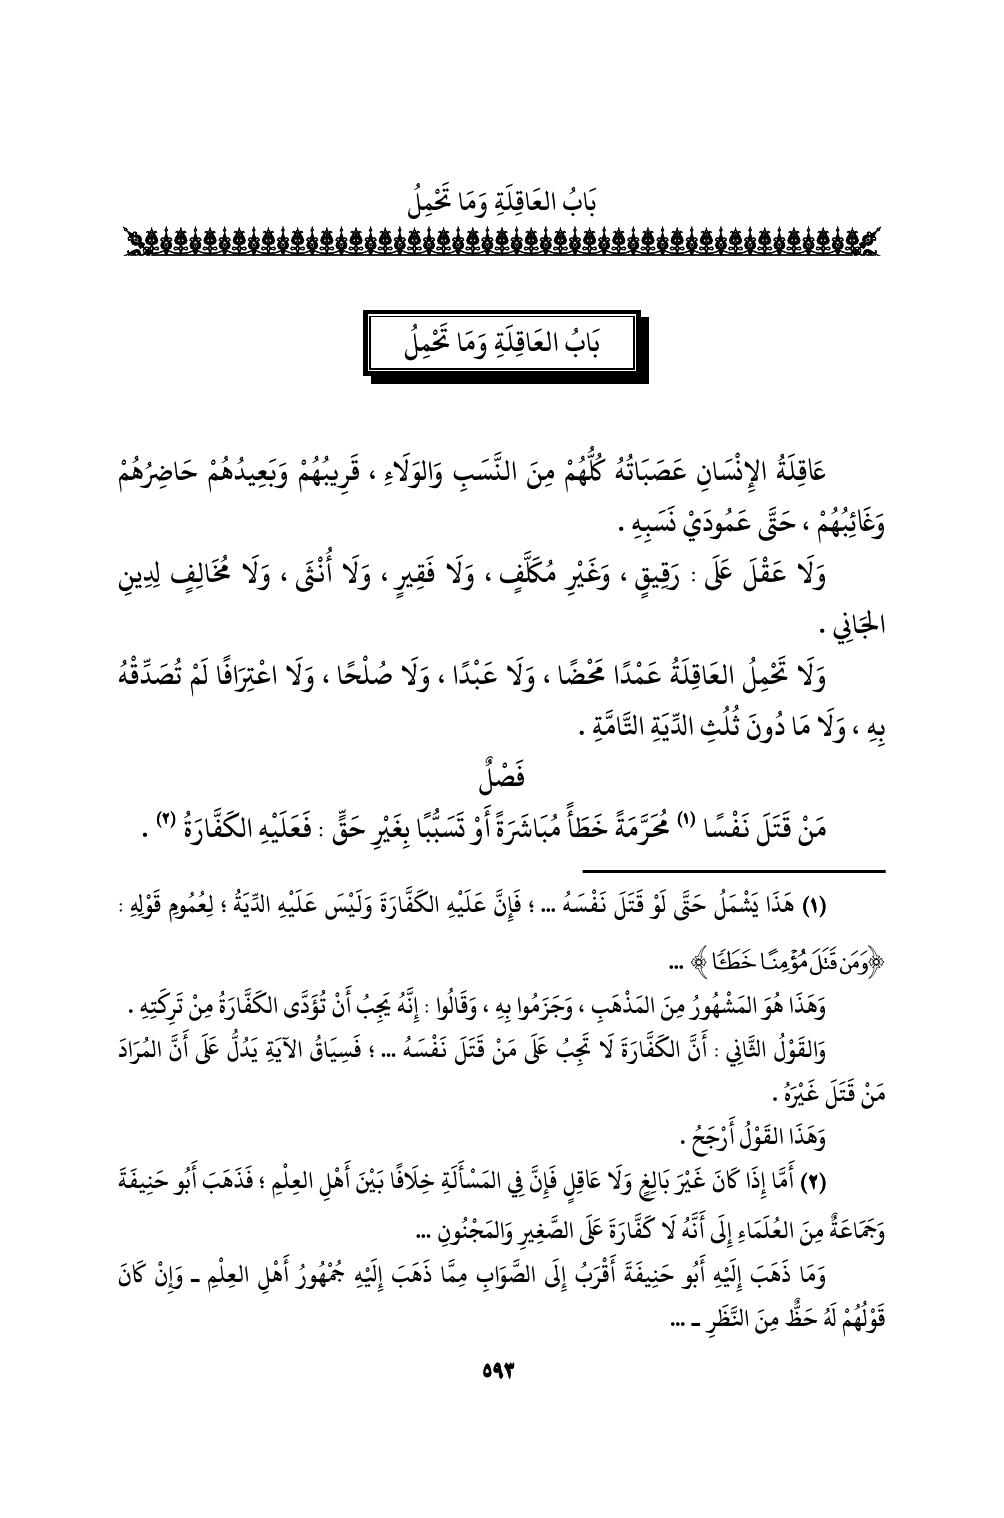 بَابُ العَاقِلَةِ وَمَا تَحْمِلُ
بَابُ العَاقِلَةِ وَمَا تَحْمِلُ
عَاقِلَةُ الإِنْسَانِ عَصَبَاتُهُ كُلُّهُمْ مِنَ النَّسَبِ وَالوَلَاءِ ، قَرِيبُهُمْ وَبَعِيدُهُمْ حَاضِرُهُمْ
وَغَائِبُهُمْ ، حَتَّى عَمُودَيْ نَسَبِهِ .
وَلَا عَقْلَ عَلَى : رَقِيقٍ ، وَغَيْرِ مُكَلَّفٍ ، وَلَا فَقِيرٍ ، وَلَا أُنْثَى ، وَلَا مُخَالِفٍ لِدِينِ
الجَانِي .
وَلَا تَحْمِلُ العَاقِلَةُ عَمْدًا مَحْضًا ، وَلَا عَبْدًا ، وَلَا صُلْحًا ، وَلَا اعْتِرَافًا لَمْ تُصَدِّقْهُ
بِهِ ، وَلَا مَا دُونَ ثُلُثِ الدِّيَةِ التَّامَّةِ .
فَصْلٌ
مَنْ قَتَلَ نَفْسًا (١) مُحَرَّمَةً خَطَأً مُبَاشَرَةً أَوْ تَسَبُّبًا بِغَيْرِ حَقٍّ : فَعَلَيْهِ الكَفَّارَةُ (٢) .
(١) هَذَا يَشْمَلُ حَتَّى لَوْ قَتَلَ نَفْسَهُ ... ؛ فَإِنَّ عَلَيْهِ الكَفَّارَةَ وَلَيْسَ عَلَيْهِ الدِّيَةُ ؛ لِعُمُومِ قَوْلِهِ :
﴿وَمَن قَتَلَ مُؤْمِنًا خَطَـًٔا﴾ ...
وَهَذَا هُوَ المَشْهُورُ مِنَ المَذْهَبِ ، وَجَزَمُوا بِهِ ، وَقَالُوا : إِنَّهُ يَجِبُ أَنْ تُؤَدَّى الكَفَّارَةُ مِنْ تَرِكَتِهِ .
وَالقَوْلُ الثَّانِي : أَنَّ الكَفَّارَةَ لَا تَجِبُ عَلَى مَنْ قَتَلَ نَفْسَهُ ... ؛ فَسِيَاقُ الآيَةِ يَدُلُّ عَلَى أَنَّ المُرَادَ
مَنْ قَتَلَ غَيْرَهُ .
وَهَذَا القَوْلُ أَرْجَحُ .
(٢) أَمَّا إِذَا كَانَ غَيْرَ بَالِغٍ وَلَا عَاقِلٍ فَإِنَّ فِي المَسْأَلَةِ خِلَافًا بَيْنَ أَهْلِ العِلْمِ ؛ فَذَهَبَ أَبُو حَنِيفَةَ
وَجَمَاعَةٌ مِنَ العُلَمَاءِ إِلَى أَنَّهُ لَا كَفَّارَةَ عَلَى الصَّغِيرِ وَالمَجْنُونِ ...
وَمَا ذَهَبَ إِلَيْهِ أَبُو حَنِيفَةَ أَقْرَبُ إِلَى الصَّوَابِ مِمَّا ذَهَبَ إِلَيْهِ جُمْهُورُ أَهْلِ العِلْمِ ـ وَإِنْ كَانَ
قَوْلُهُمْ لَهُ حَظٌّ مِنَ النَّظَرِ ـ ...
٥٩٣